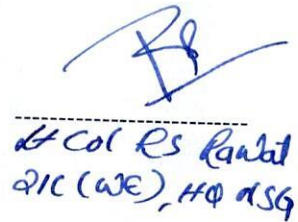 Lt Col RS Rawat
2IC (WE), HQ NSG